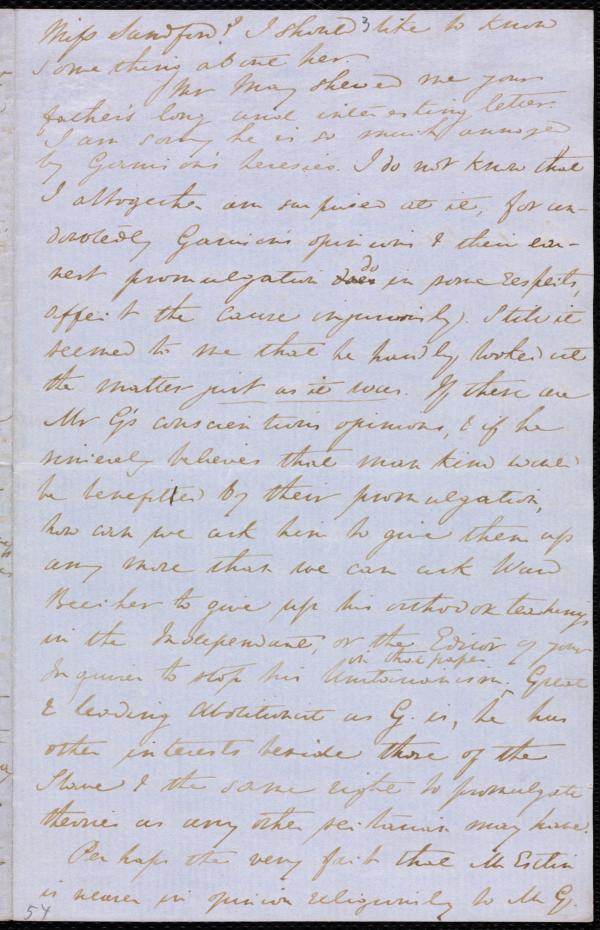 Miss Sandford? I should like to know
3
something about her.
Mr May shewed me your
father's long and interesting letter.
I am sorry he is so much annoyed
by Garrison's heresies. I do not know that
I altogether am surprised at it, for un-
doubtedly Garrison's opinions & their ear-
nest promulgation does do in some respects,
affect the cause injuriously. Still it
seemed to me that he hardly looked at
the matter just as it was. If these are
Mr G's conscientious opinions, & if he
sincerely believes that mankind would
be benefitted by their promulgation,
how can we ask him to give them up
any more than we can ask Ward
Beecher to give up his orthodox teachings
in the Independant, or the Editor of your
Inquirer to stop his Unitarianism in that paper. Great
& leading Abolitionist as G. is, he has
other interests beside those of the
Slave & the same right to promulgate
theories as any other sectarian may have.
Perhaps the very fact that Mr Estlin
is nearer in opinion religiously to Mr G.
54